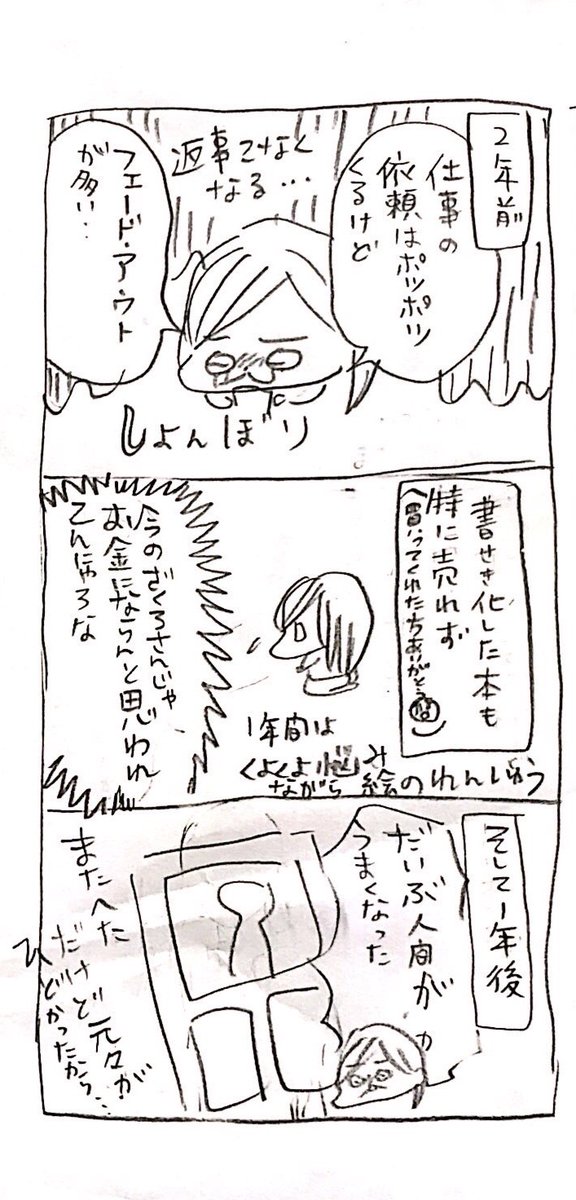 2年前
仕事の
依頼はポツポツ
くるけど
返事こなく
なる…
フェード・アウト
が多い…
しょんぼり
書せき化した本も
特に売れず
買ってくれた方ありがとう
今のざくろさんじゃ
お金にならんと思われ
てんじゃろな
1年間は
くよくよ悩み
ながら絵のれんしゅう
そして1年後
だいぶ人間が
うまくなった
まだへた
だけど元々が
ひどかったから…